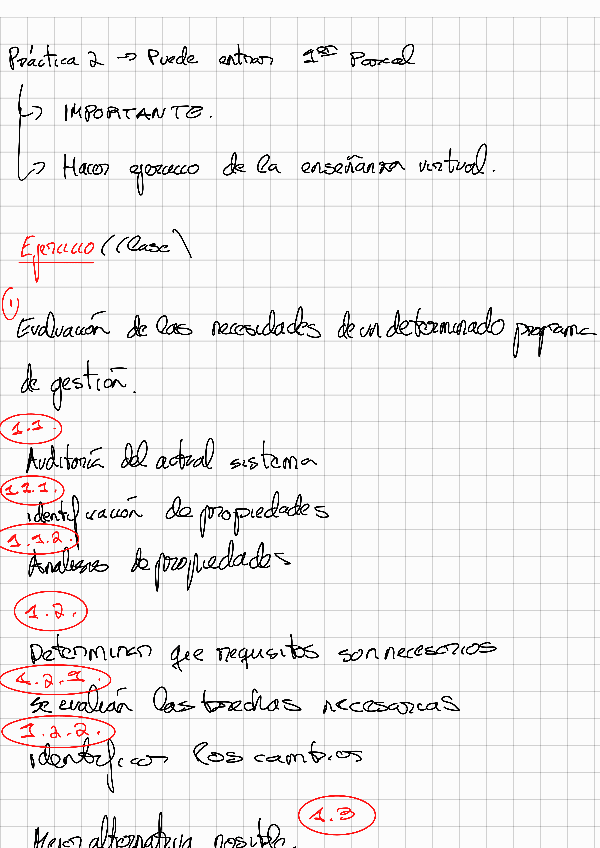 Práctica 2 → Puede entrar 1er Parcial
↳ IMPORTANTE.
↳ Hacer ejercicio de la enseñanza virtual.
Ejercicio (Clase)
1
Evaluación de las necesidades de un determinado programa
de gestión.
1.1.
Auditoría del actual sistema
1.1.1.
identificación de propiedades
1.1.2.
Analisis de propiedades
1.2.
Determinar que requisitos son necesarios
1.2.1.
se evalúan las brechas necesarias
1.2.2.
identificar los cambios
1.3
Mejor alternativa posible.